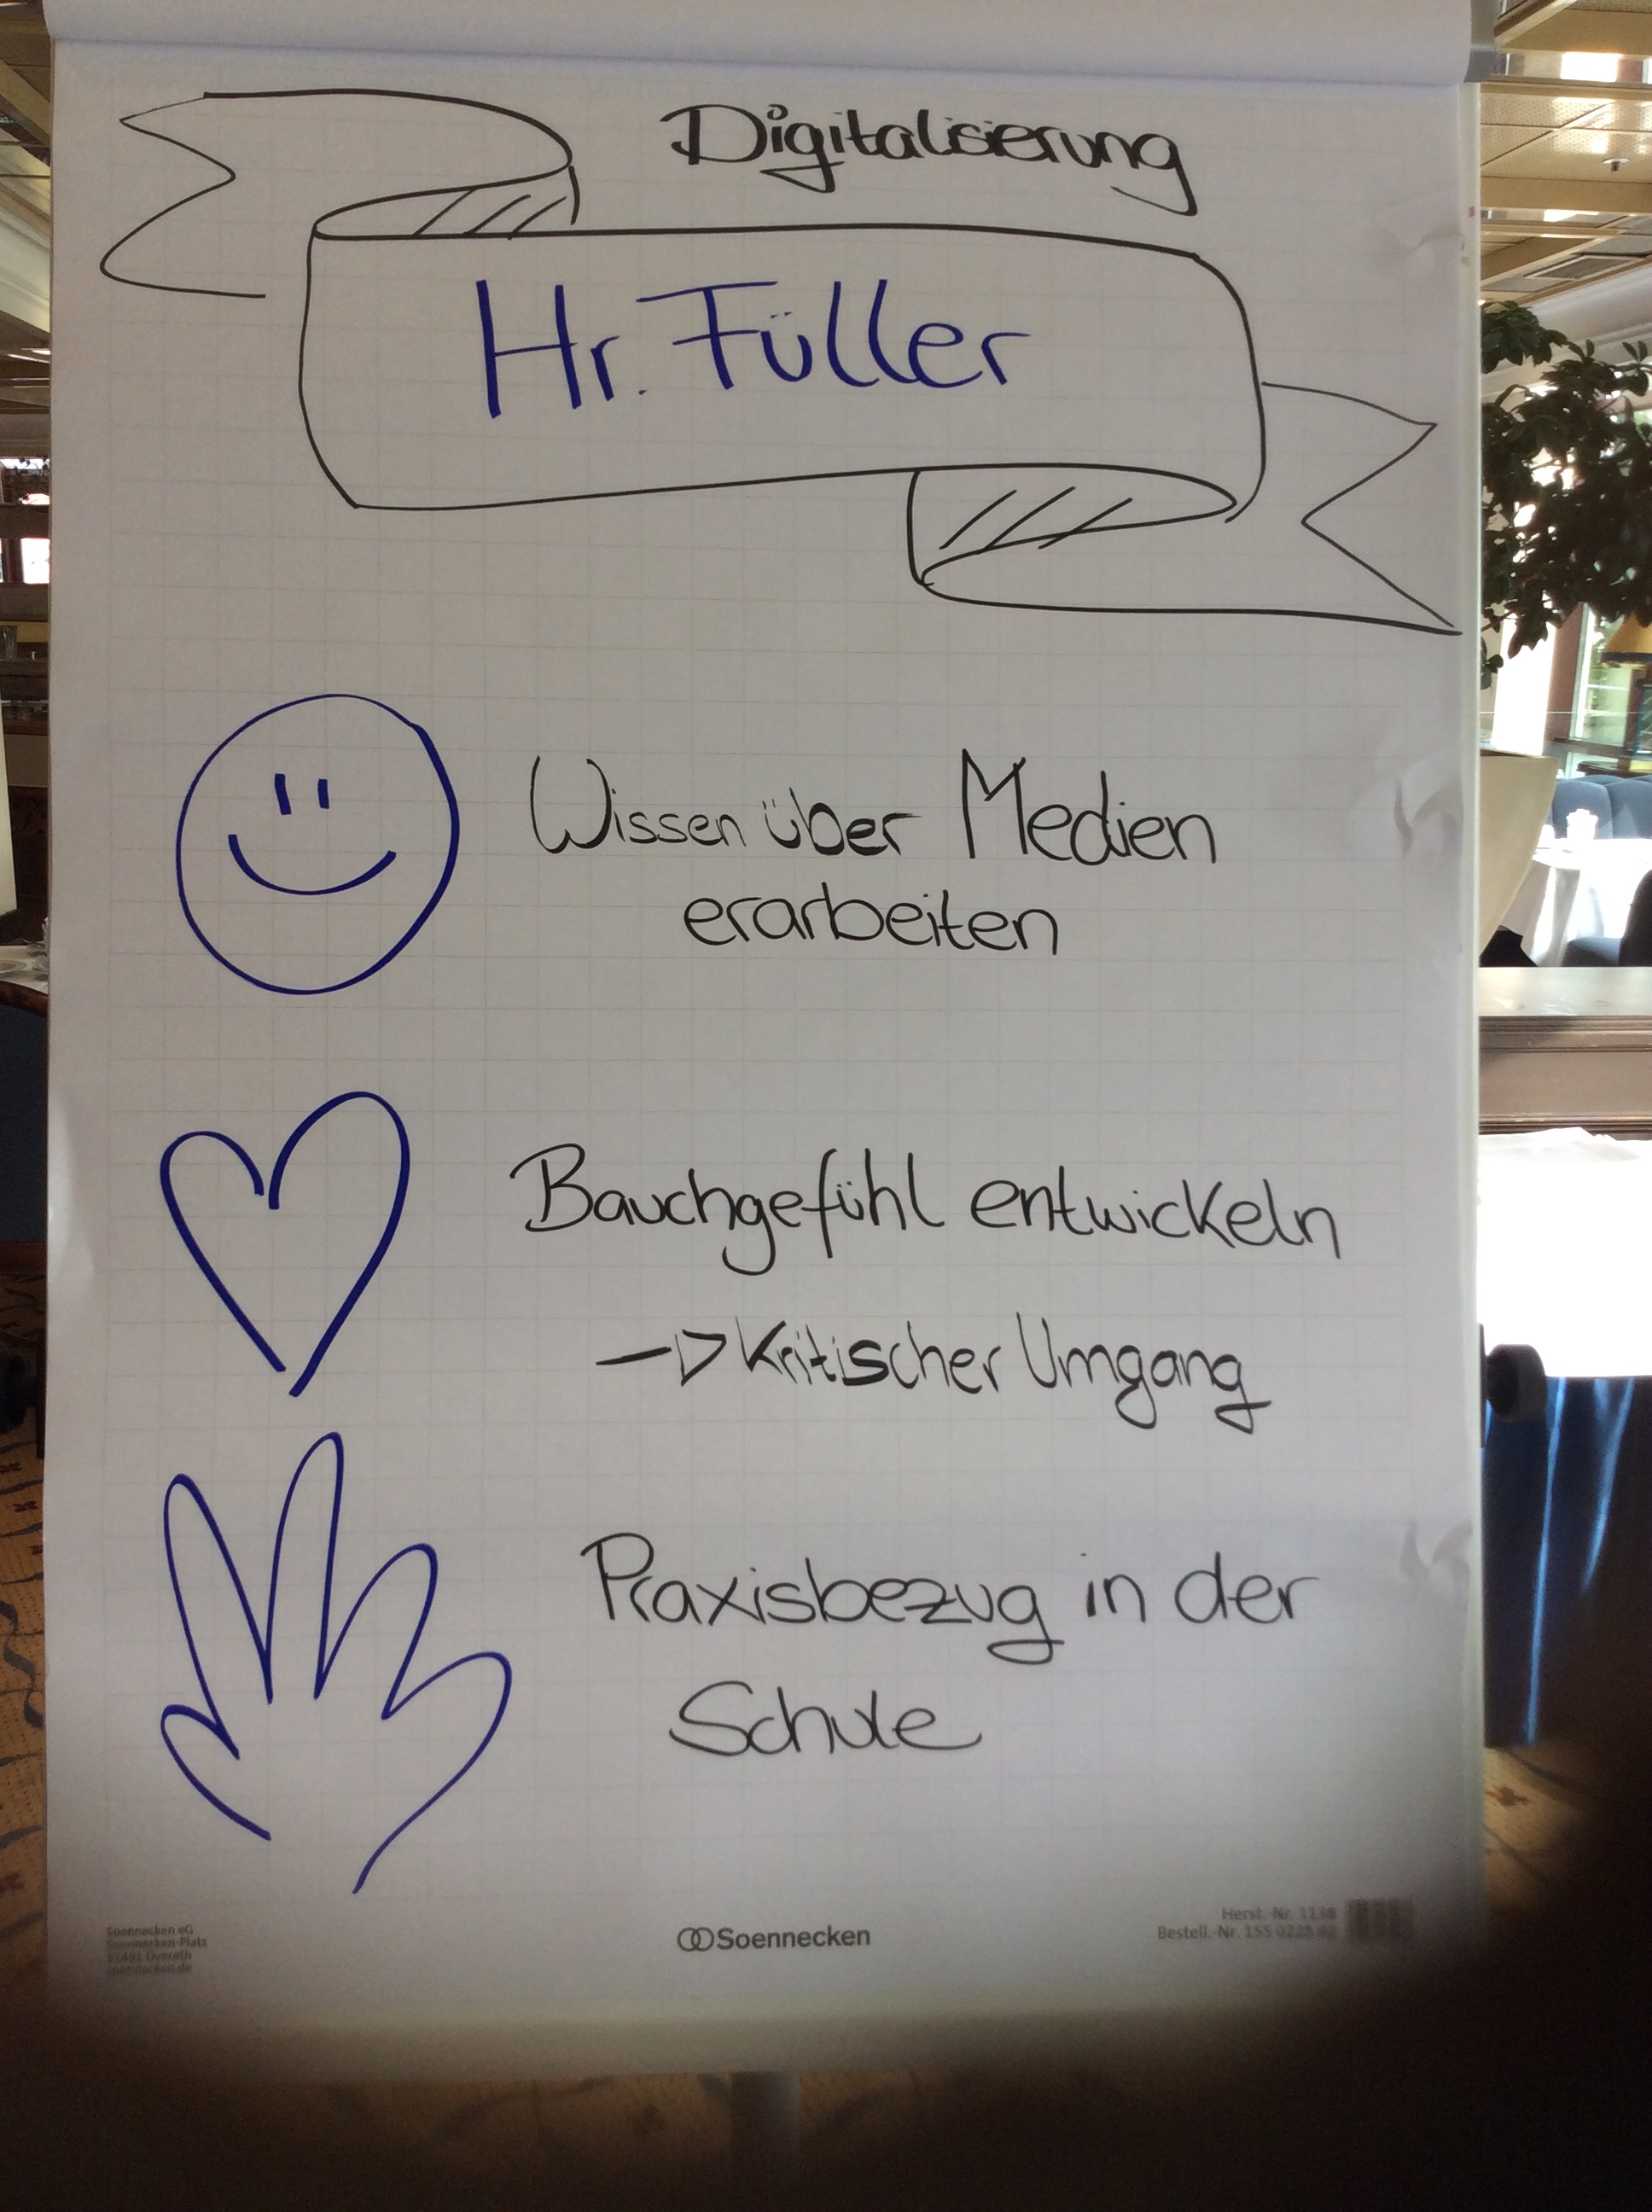 Digitalisierung
Hr. Füller
Wissen über Medien
erarbeiten
Bauchgefühl entwickeln
→ Kritischer Umgang
Praxisbezug in der
Schule
Soennecken eG
Soennecken-Platz
51491 Overath
soennecken.de
Soennecken
Herst.-Nr. 1138
Bestell.-Nr. 155